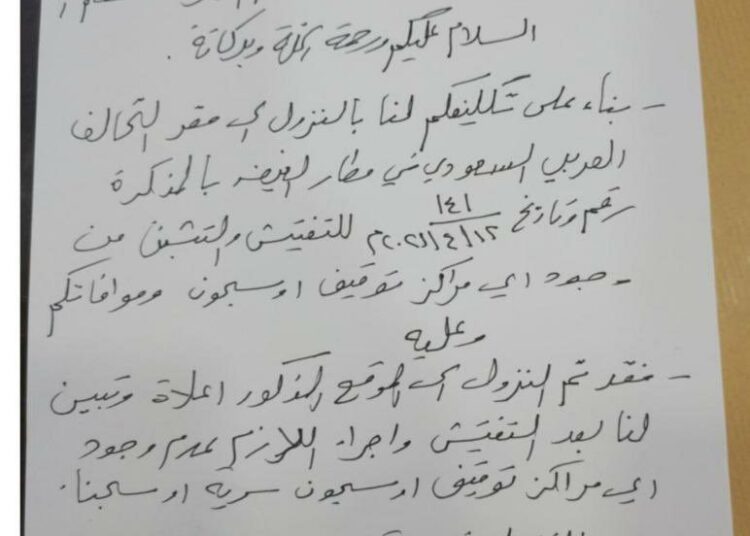 السلام عليكم ورحمة الله وبركاتة .
- بناء على تكليفكم لنا بالنزول الى مقر التحالف
العربي السعودي في مطار الغيضه بالمذكرة
رقم وتاريخ ١٤١ / ١٢/٤/٢٠٢١م للتفتيش والتبين من
- وجود اي مراكز توقيف او سجون وموافاتكم
وعليه
- فقد تم النزول الى الموقع المذكور اعلاة وتبين
لنا بعد التفتيش واجراء اللازم عدم وجود
اي مراكز توقيف او سجون سريه او سجنا .